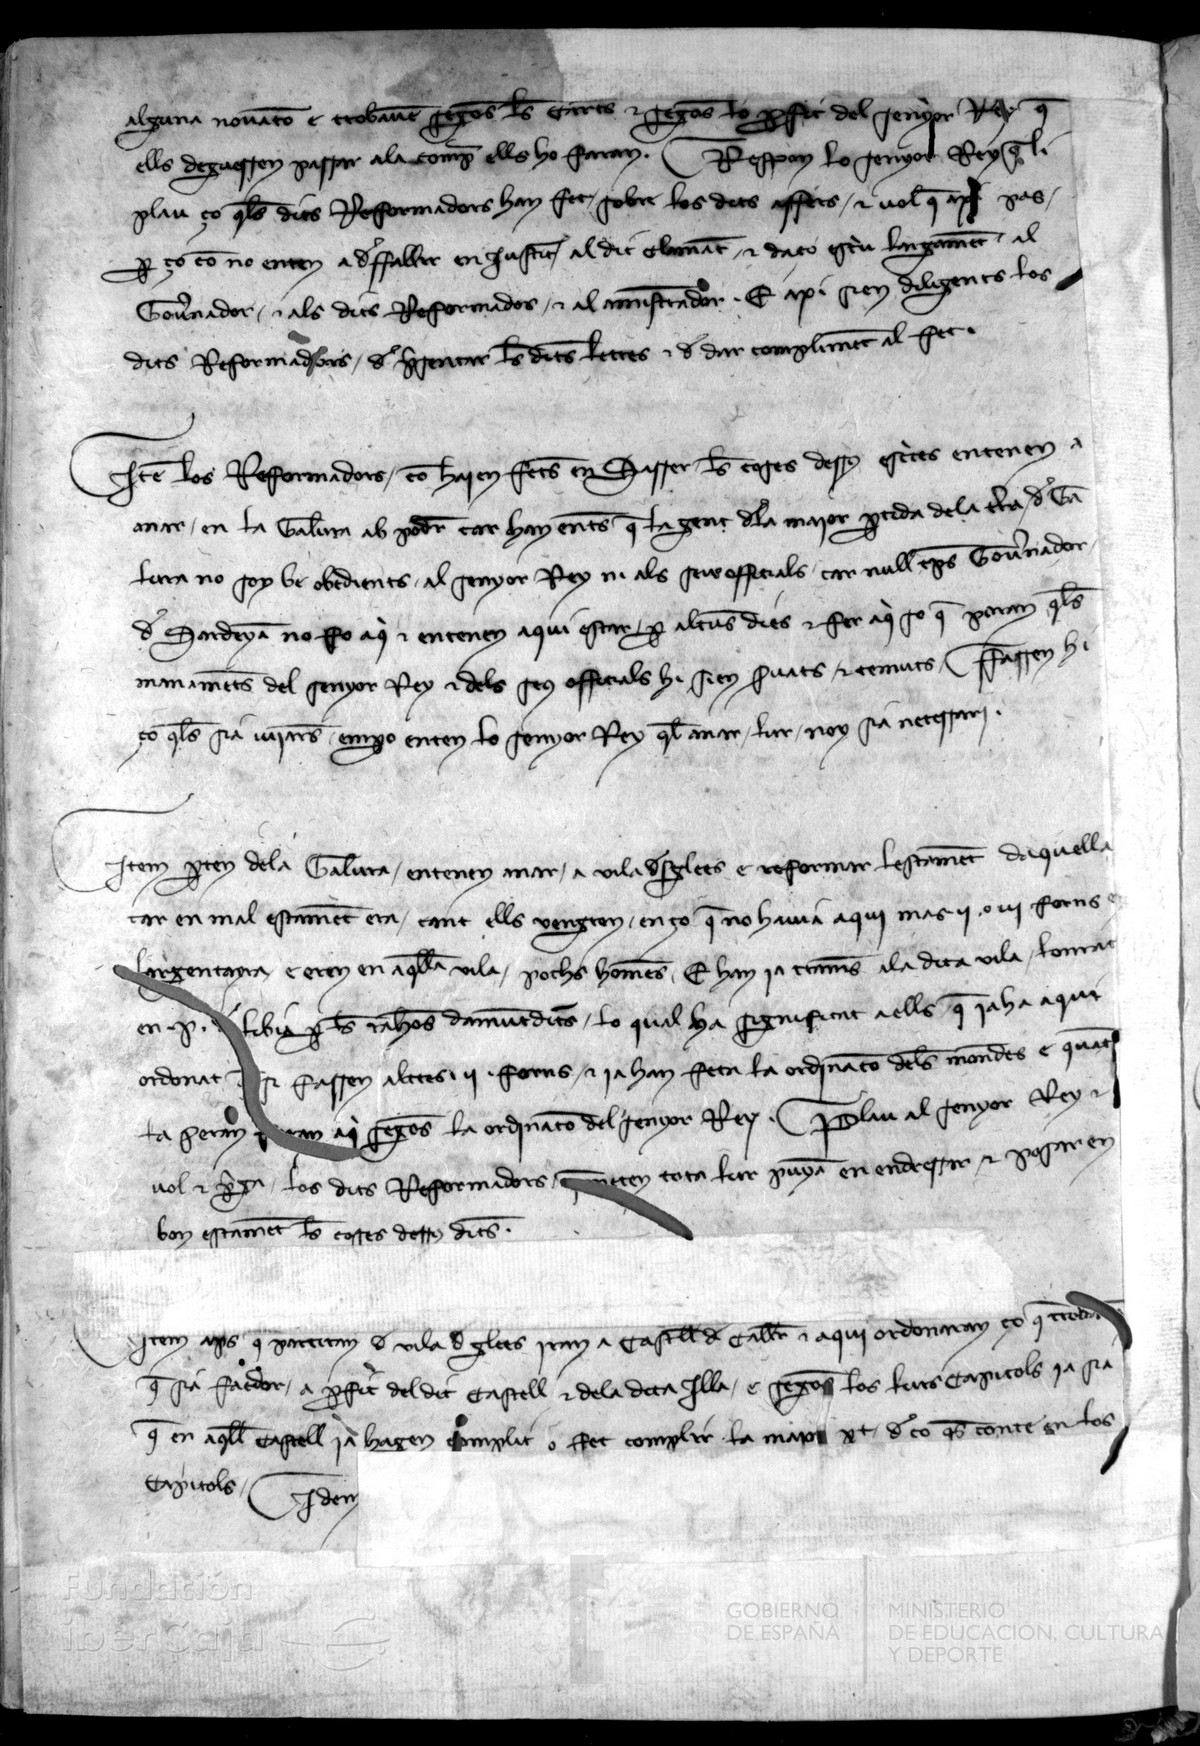 alguna novaco e trobaue segos les cartes e segos lo pfit del senyor Rey q
ells deguessen passar ala comp ells ho faran. Respon lo senyor Rey q li
plau ço qls dits Reformadors han fet / sobre los dits affers / e vol q axi pas /
p ço co no enten a dffallir en Justic al dit clamat / e daço escriu largamet al
Gouernador / e als dits Reformados / e al aministrador. E axi sien diligents los
dits Reformadors / de psentar les dits letres e de dar complimet al fet.
Ite los Refformadors / co haien fets en Sasser les coses dessus escrites entenen a
anar / en la Gallura ab poder car han entes q la gent dela maior ptida dela tra / de Ga
lura no son be obedients / al senyor Rey ni als seus officials / car null tps Gouernador /
de Sardeya no fo aqi e entenen aqui estar / p alcuns dies e fer aqi ço q poran qls
manamets del senyor Rey e dels seus officials hi sien suats / e temuts / ffassen hi
ço qls sia uiiares / empo enten lo senyor Rey ql anar / lur / noy sia necessari.
Item pten dela Gallura / entenen anar / a vila dsglees e reformar lestamet daquella
car en mal estamet era / cant ells vengren / en ço q no hauia aqui mas ii o iii forns
largentayra e eren en aqlla vila / pochs homes. E han ia trames ala dita vila / lonrat
en P. de libia p les rahos damutdites / lo qual ha significat a ells q ia ha aqui
ordonat si fassen altres ii forns / e ia han feta la ordinaco dels mondes e quat
la seran aqi segos la ordinaco del senyor Rey. Plau al senyor Rey e
vol e pga / los dits Reformadors / meten tota lur puya en endressar / e posar en
bon estamet les coses dessus dites.
Item aps q partiran de vila de glees iran a Castell de Caller e aqui ordonaran ço q trobaran
q sia faedor / a pfit del dit Castell e dela dita Illa / e segos los lurs Capitols ia sia
q en aqll Castell ia hagen complit o fet complir la maior pt / de ço qs conte en los
Capitols / Idem
Fundación
iberCaja
GOBIERNO
DE ESPAÑA
MINISTERIO
DE EDUCACIÓN, CULTURA
Y DEPORTE